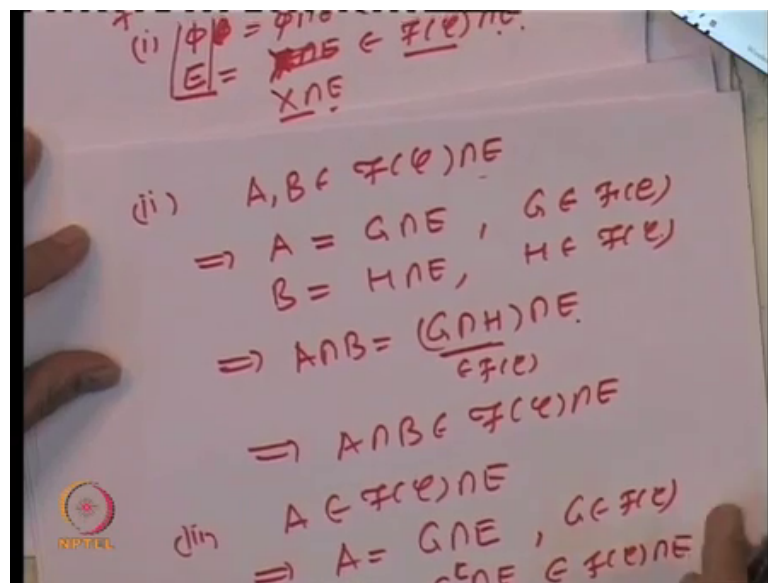 (i) ϕ = ϕ∩E
E = X∩E ∈ F(φ)∩E.
(ii) A, B ∈ F(φ)∩E
⇒ A = G∩E, G ∈ F(φ)
B = H∩E, H ∈ F(φ)
⇒ A∩B = (G∩H)∩E.
∈ F(φ)
⇒ A∩B ∈ F(φ)∩E
(iii) A ∈ F(φ)∩E
⇒ A = G∩E, G ∈ F(φ)
Gᶜ∩E ∈ F(φ)∩E
NPTEL